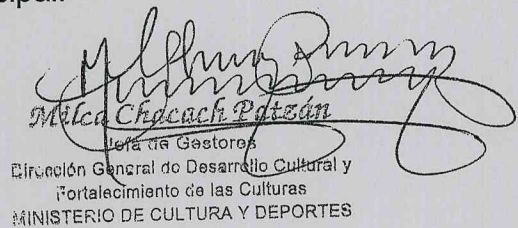 Milca Chacach Patzán
Jefa de Gestores
Dirección General de Desarrollo Cultural y
Fortalecimiento de las Culturas
MINISTERIO DE CULTURA Y DEPORTES